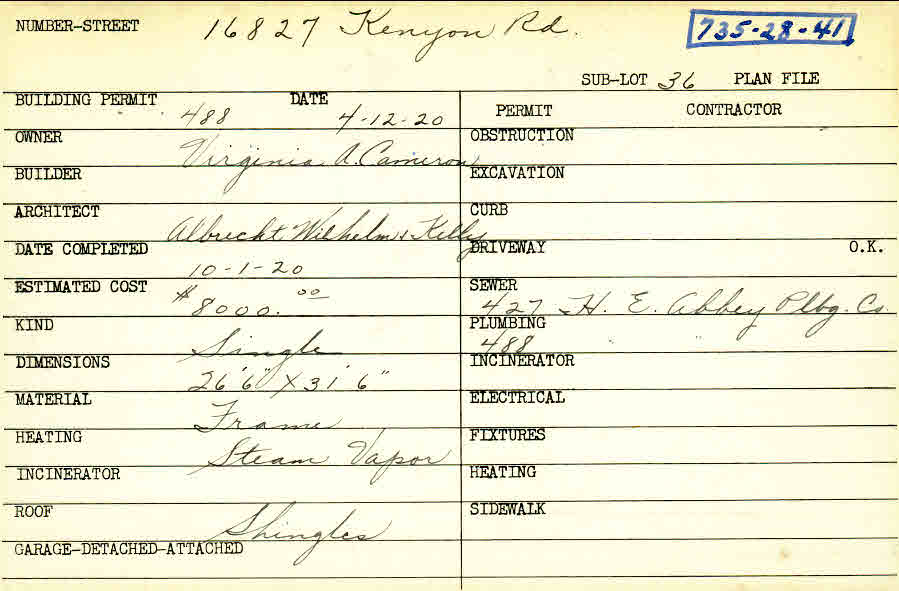 NUMBER-STREET 16827 Kenyon Rd. 735-28-41
SUB-LOT 36 PLAN FILE
BUILDING PERMIT 488 DATE 4-12-20
OWNER Virginia A. Cameron
BUILDER
ARCHITECT Albrecht Wilhelm & Kelly
DATE COMPLETED 10-1-20
ESTIMATED COST $8000.00
KIND Single
DIMENSIONS 26'6" X 31'6"
MATERIAL Frame
HEATING Steam Vapor
INCINERATOR
ROOF Shingles
GARAGE-DETACHED-ATTACHED
PERMIT CONTRACTOR
OBSTRUCTION
EXCAVATION
CURB
DRIVEWAY O.K.
SEWER 427 H. E. Abbey Plbg. Co.
PLUMBING 488 " "
INCINERATOR
ELECTRICAL
FIXTURES
HEATING
SIDEWALK